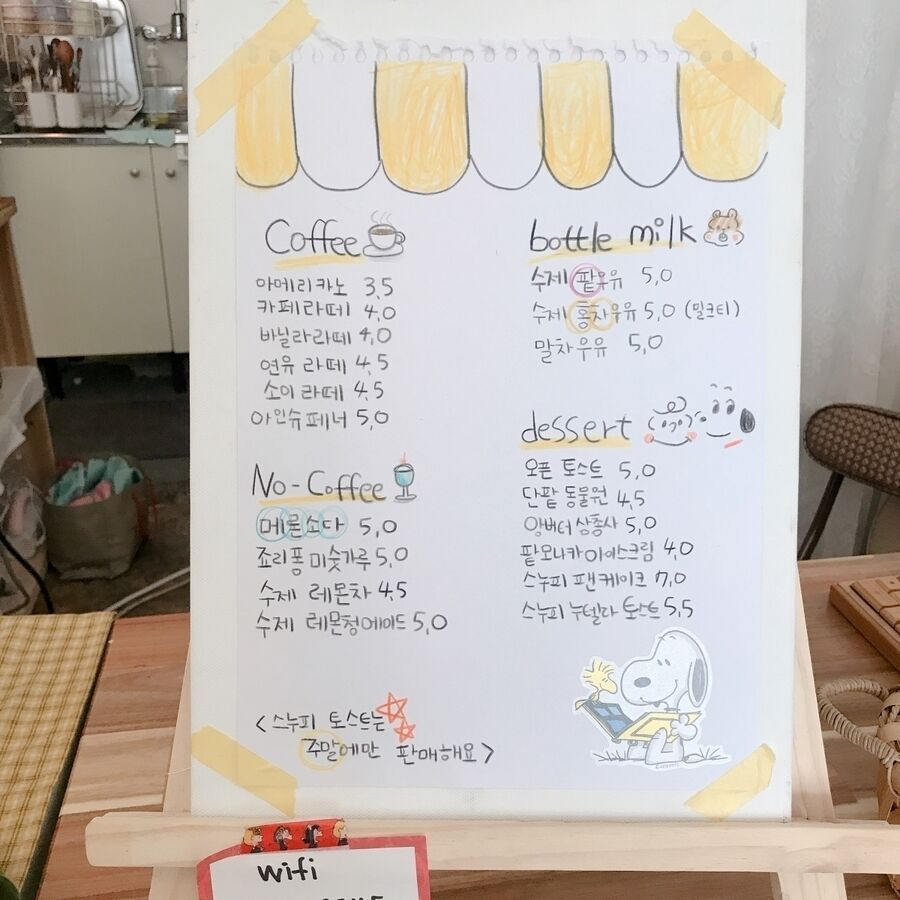 Coffee
아메리카노 3,5
카페라떼 4,0
바닐라라떼 4,0
연유 라떼 4,5
소이 라떼 4,5
아인슈페너 5,0
No-Coffee
메론소다 5,0
죠리퐁 미숫가루 5,0
수제 레몬차 4,5
수제 레몬청에이드 5,0
<스누피 토스트는
주말에만 판매해요>
bottle milk
수제 팥우유 5,0
수제 홍차우유 5,0 (밀크티)
말차우유 5,0
dessert
오픈 토스트 5,0
단팥 동물원 4,5
앙버터 삼총사 5,0
팥모나카아이스크림 4,0
스누피 팬케이크 7,0
스누피 누텔라 토스트 5,5
wifi